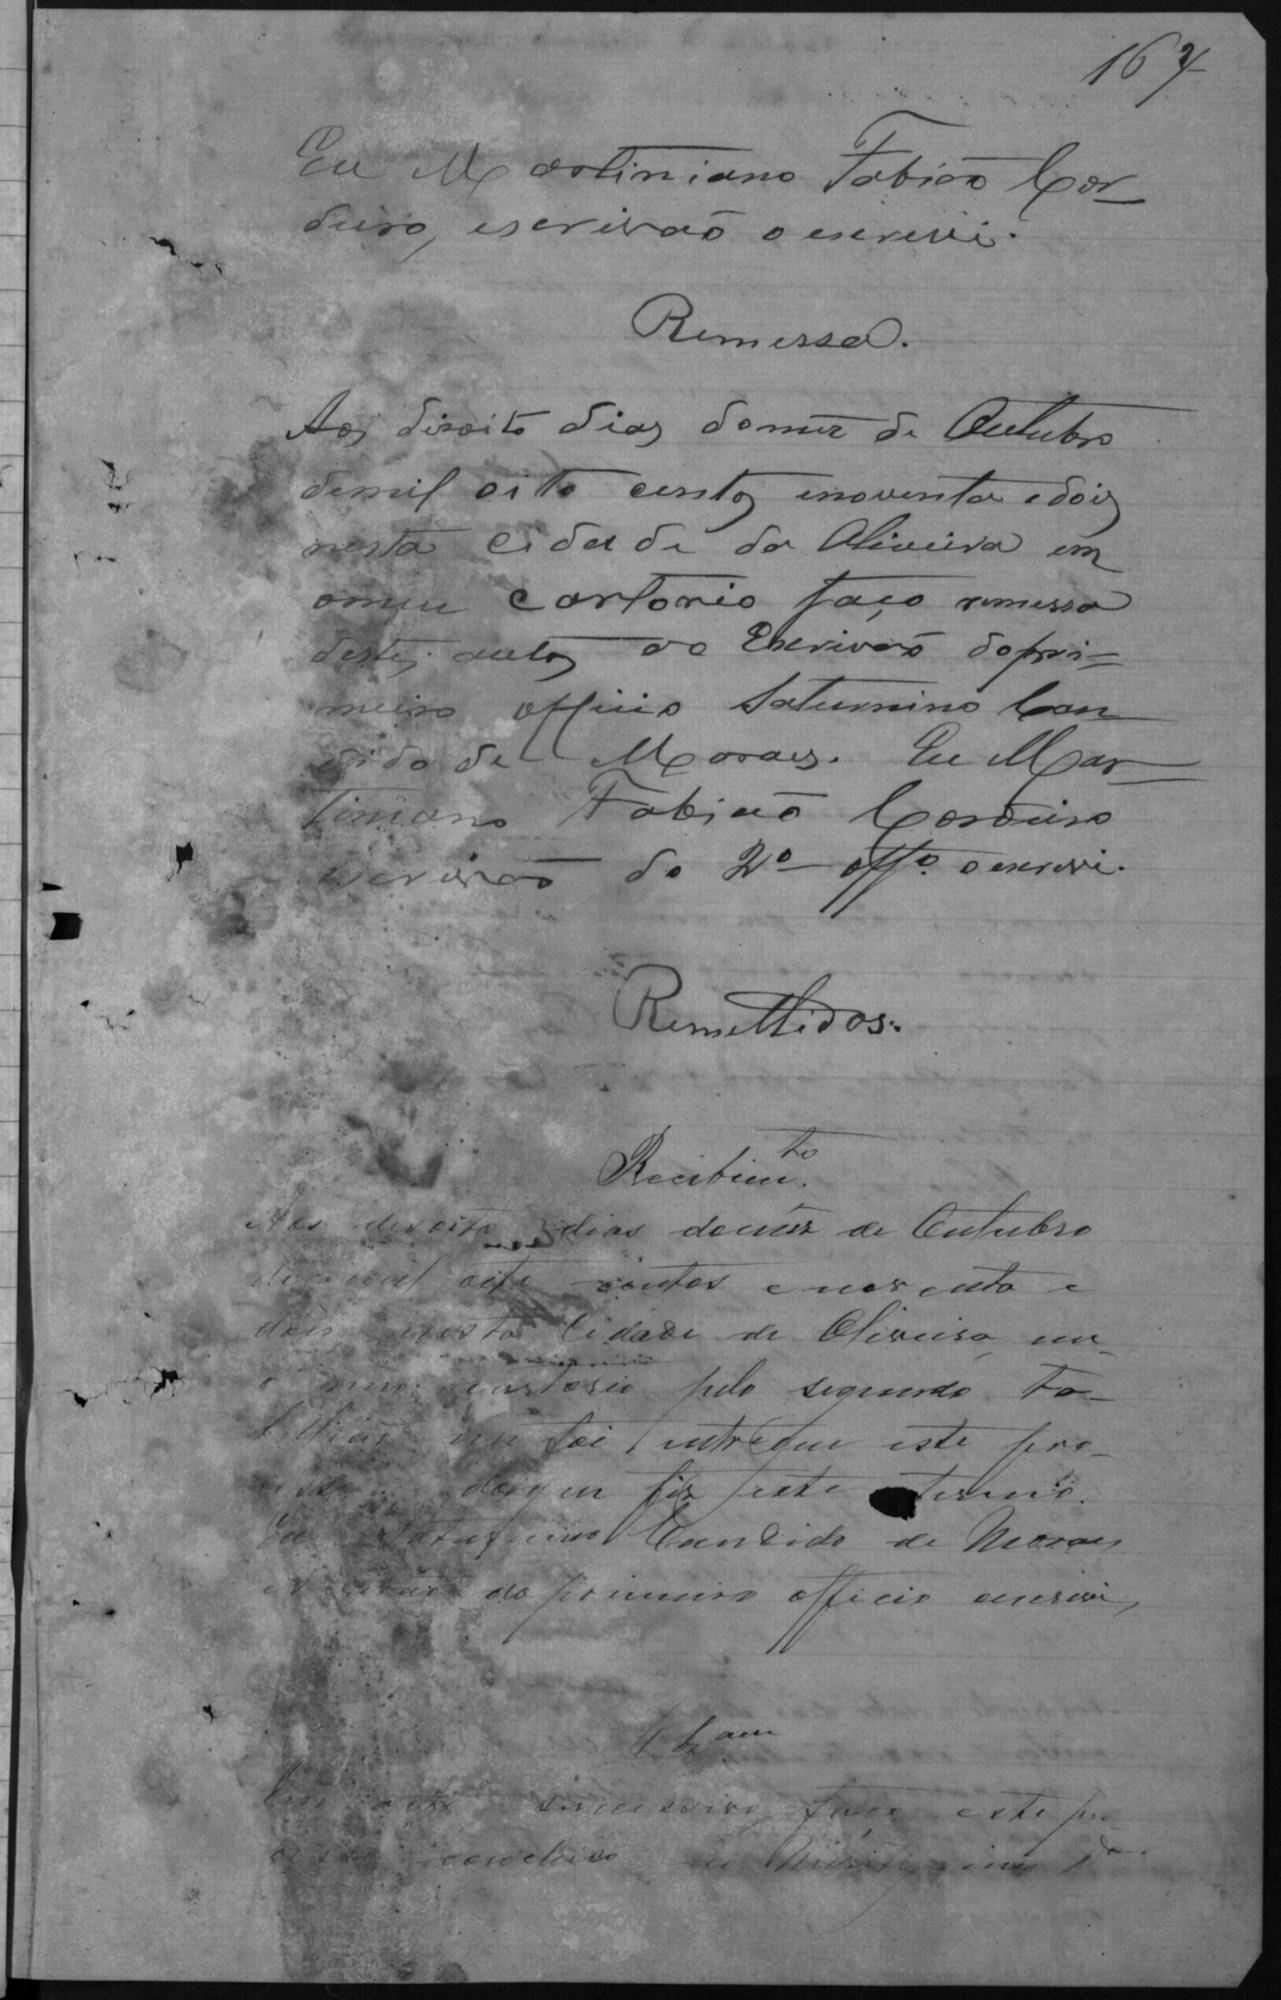 167
Eu Martiniano Fabião Cor-
deiro, escrivão o escrevi.
Remessa.
Aos desoito dias do mez de Outubro
de mil oito centos e noventa e dois
nesta Cidade da Oliveira em
o meu Cartorio faço remessa
destes autos ao Escrivão do pri-
meiro officio Saturnino Can
dido de Moraes. Eu Mar-
tiniano Fabião Cordeiro
escrivão do 2º offº o escrevi.
Remettidos.
Recebimto.
Aos desoito dias do mez de Outubro
de mil oito centos e noventa e
dois nesta Cidade de Oliveira, em
o meu cartorio pelo segundo Ta-
bellião me foi entregue este pro-
cesso do que fiz este termo.
Eu Saturnino Candido de Moraes
escrivão do primeiro officio escrevi,
Em acto successivo faço este pro-
cesso concluso